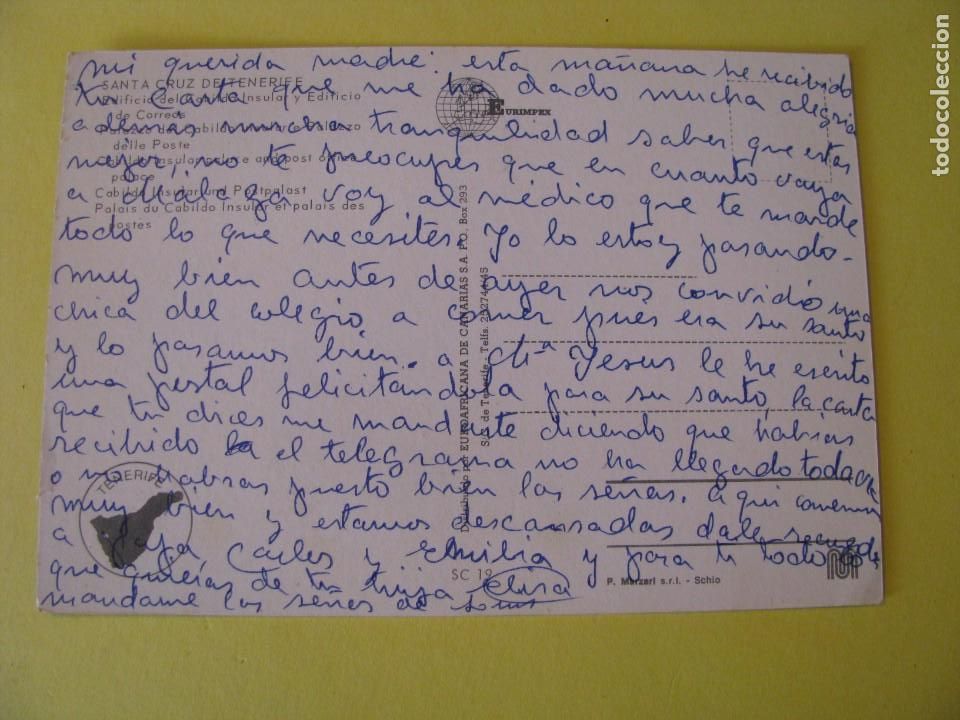 mi querida madre: esta mañana he recibido
tu carta que me ha dado mucha alegria
ademas mucha tranquilidad saber que estas
mejor, no te preocupes que en cuanto vaya
a voy al médico que te mande
todo lo que necesites. Yo lo estoy pasando
muy bien antes de ayer nos convidó una
chica del colegio a comer pues era su santo
y lo pasamos bien. a Mª Jesus le he escrito
una postal felicitándola para su santo, la carta
que tu dices me mandaste diciendo que habias
recibido el telegrama no ha llegado todavia
o no habras puesto bien las señas. aqui comemos
muy bien y estamos descansadas dale recuerdos
a Papa Carlos y Emilia y para ti todo lo
que quieras de tu hija Elisa
mandame las señas de
SANTA CRUZ DE TENERIFE
Edificio del Cabildo Insular y Edificio
de Correos
delle Poste
Cabildo Insular palace and post office
palace
Cabildo Insular und Postpalast
Palais du Cabildo Insulaire et palais des
Postes
EURIMPEX
Distribuido por EUROAFRICANA DE CANARIAS S.A. P.O. Box 293
S/C de Tenerife - Telfs.
TENERIFE
SC 19
P. Marzari s.r.l. - Schio
todocoleccion